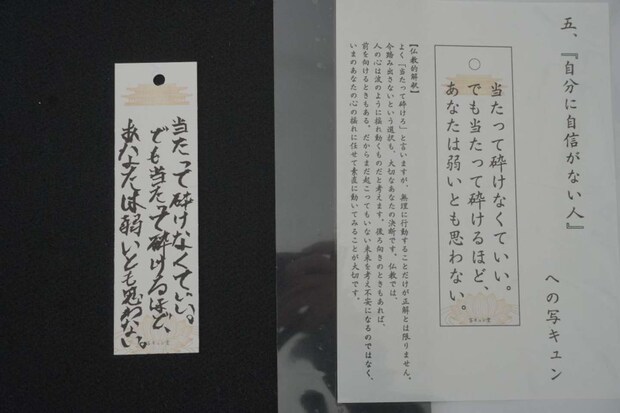 五、『自分に自信がない人』
への写キュン
当たって砕けなくていい。
でも当たって砕けるほど、
あなたは弱いとも思わない。
【仏教的解釈】
よく「当たって砕けろ」と言いますが、無理に行動することだけが正解とは限りません。
今踏み出さないという選択も、大切なあなたの決断です。仏教では、
人の心は波のように揺れ動くものだと考えます。後ろ向きのときもあれば、
前を向けるときもある。だからまだ起こってもいない未来を考え不安になるのではなく、
いまのあなたの心の揺れに任せて素直に動いてみることが大切です。
当たって砕けなくていい。
でも当たって砕けるほど、
あなたは弱いとも思わない。